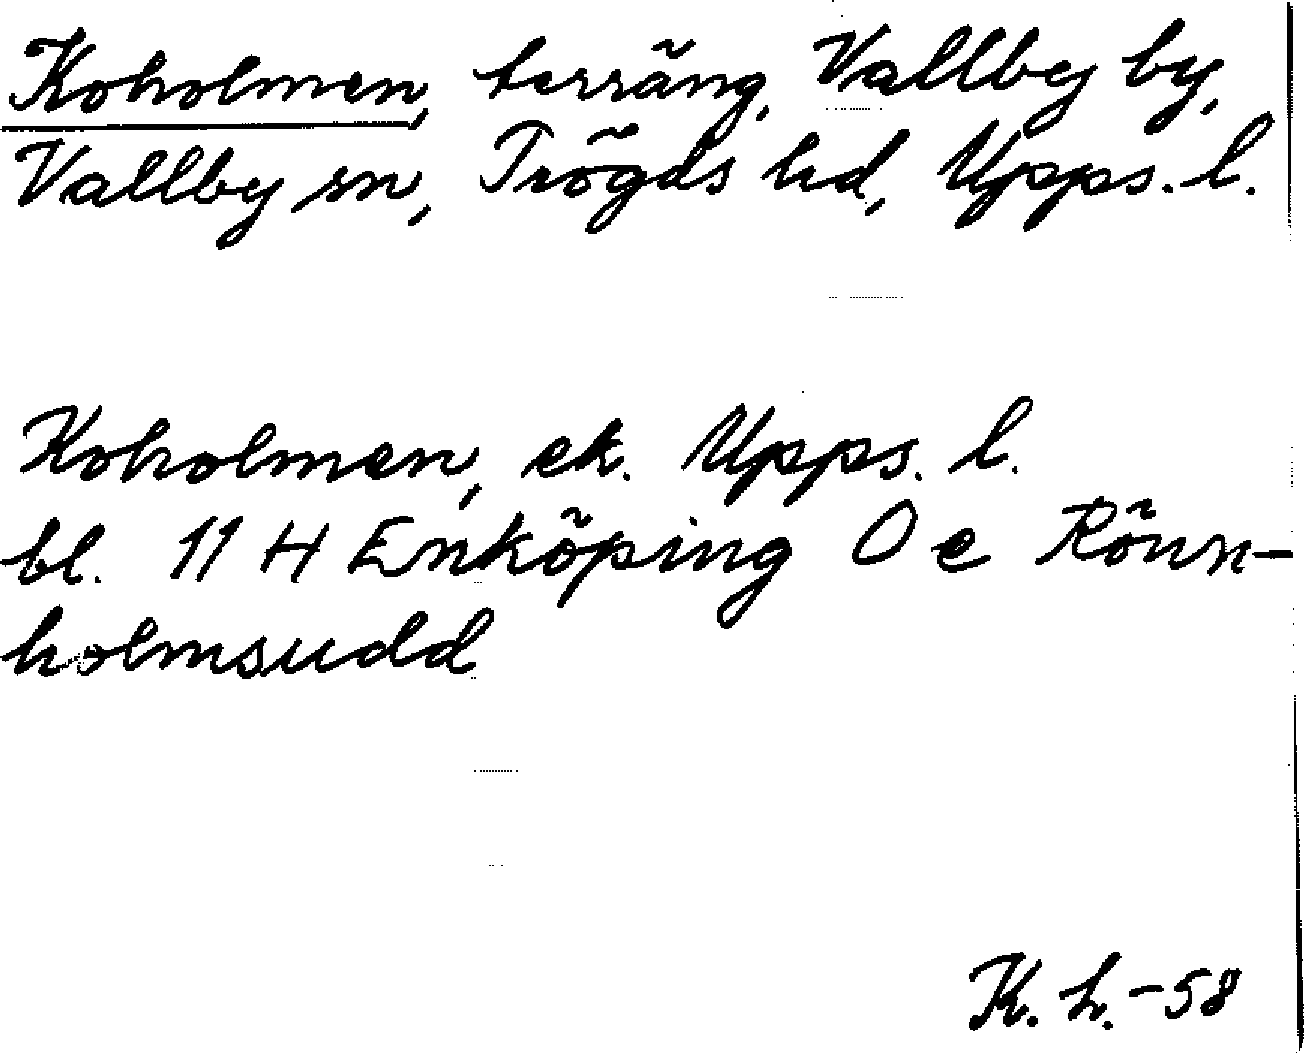 Koholmen, terräng, Vallby by,
Vallby sn, Trögds hd, Upps. l.
Koholmen, ek. Upps. l.
bl. 11 H Enköping O e Rönn-
holmsudd
K. h. -58